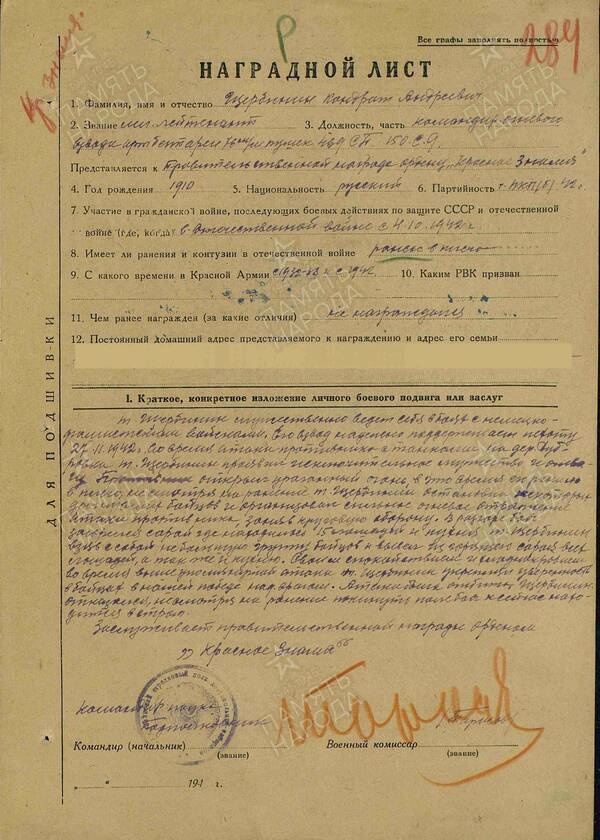 Все графы заполнять полностью
Кр знамя.
Р
284
НАГРАДНОЙ ЛИСТ
1. Фамилия, имя и отчество Щербинин Кондрат Андреевич
2. Звание мл. лейтенант 3. Должность, часть командир огневого
взвода арт батареи 76 мм пушек 469 СП 150 С.Д.
Представляется к Правительственной награде ордену „Красное Знамя"
4. Год рождения 1910 5. Национальность русский 6. Партийность ВКП(б) 42 г.
7. Участие в гражданской войне, последующих боевых действиях по защите СССР и отечественной
войне (где, когда) в Отечественной войне с 4.10.1942 г.
8. Имеет ли ранения и контузии в отечественной войне ранен в плечо
9. С какого времени в Красной Армии с 1932-33 и с 1942 10. Каким РВК призван
11. Чем ранее награжден (за какие отличия) не награждался
12. Постоянный домашний адрес представляемого к награждению и адрес его семьи
ДЛЯ ПОДШИВКИ
I. Краткое, конкретное изложение личного боевого подвига или заслуг
т. Щербинин мужественно ведет себя в боях с немецко-
фашистскими войсками. Его взвод надежно поддерживает пехоту
27.11.1942 г. во время атаки противника с танками, на дер. Дуб-
ровка т. Щербинин проявил исключительное мужество и отва-
гу. открыл ураганный огонь, в это время его ранило
в плечо, несмотря на ранение т. Щербинин остановил некоторых
бойцов и организовал сильное огневое отражение
атаки противника, заняв круговую оборону. В разгаре боя
загорелся сарай где находилось 15 лошадей и кухня, т. Щербинин
взяв с собой небольшую группу бойцов и вывел из горящего сарая всех
лошадей, а так же и кухню. Своим спокойствием и
во время вышеупомянутой атаки т. Щербинин уверенность
в бойцах в нашей победе над врагом. Щербинин
отказался, несмотря на ранение покинуть поле боя и сейчас нахо-
дится в строю.
Заслуживает правительственной награды орденом
„Красное Знамя"
Командир полка
Подполковник
Командир (начальник) Военный комиссар
(звание) (звание)
194 г.
ПАМЯТЬ НАРОДА